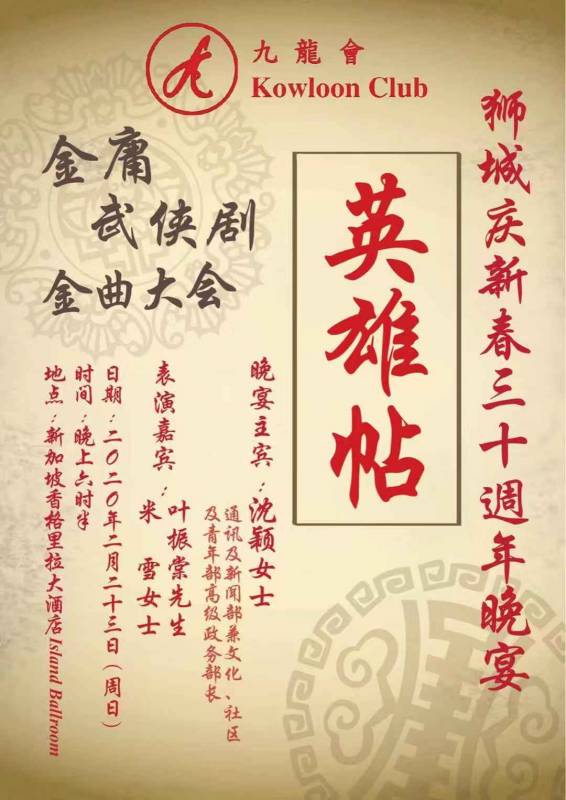 九龍會
Kowloon Club
狮城庆新春三十週年晚宴
英雄帖
金庸
武侠剧
金曲大会
晚宴主宾：沈颖女士
通讯及新闻部兼文化、社区
及青年部高级政务部长
表演嘉宾：叶振棠先生
米雪女士
日期：二〇二〇年二月二十三日（周日）
时间：晚上六时半
地点：新加坡香格里拉大酒店Island Ballroom